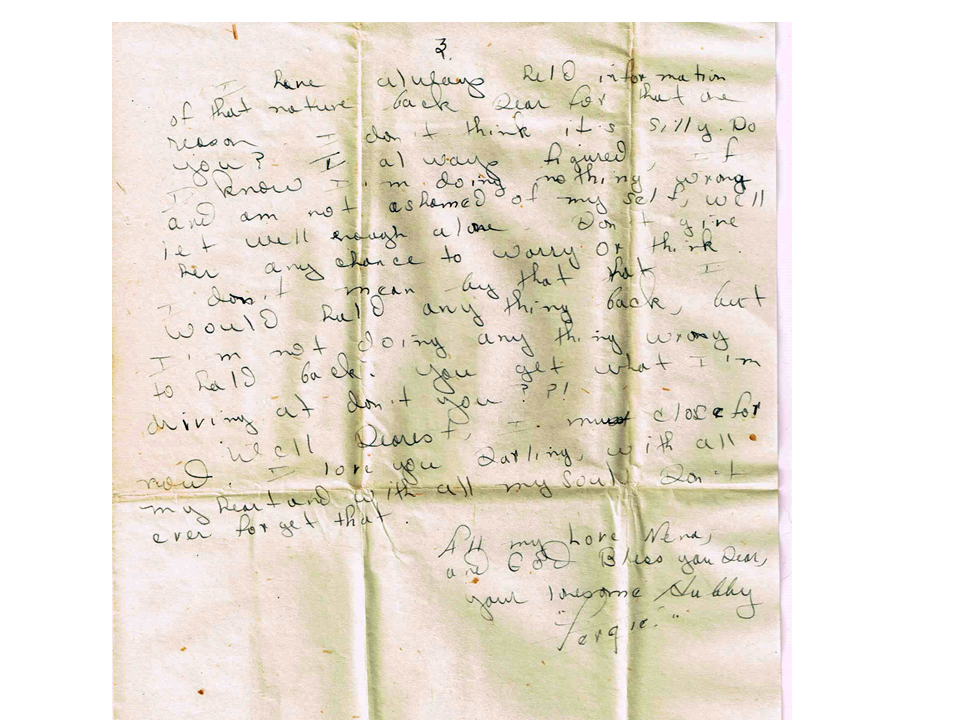 3.
I have always held information
of that nature back Dear for that one
reason I don't think it's silly. Do
you? I always figured, if
I know I'm doing nothing wrong
and am not ashamed of my self, well
let well enough alone. Don't give
her any chance to worry or think.
I don't mean by that that I
would hald any thing back, but
I'm not doing any thing wrong
to hald back. You get what I'm
driving at don't you? ?!
Well Dearest, I must close for
now. I love you Darling, with all
my heart and with all my soul. Don't
ever forget that.
All my Love Nena,
and God Bless you Dear,
your lonesome Hubby